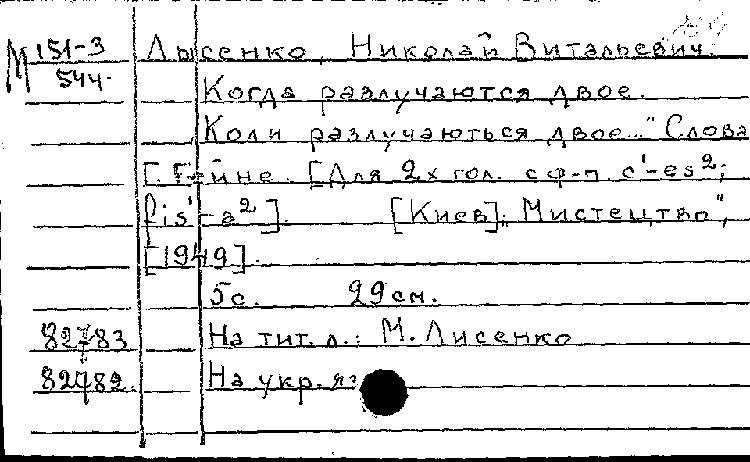 М 151-3 Лысенко, Николай Витальевич.
544.
Когда разлучаются двое.
Коли разлучаються двое..." Слова
Г. Гейне. [Для 2х гол. с ф-п. c'-es²;
fis'-a²]. [Киев], "Мистецтво",
[1949].
5с. 29см.
82783 На тит. л.: М. Лисенко
82782. На укр. яз